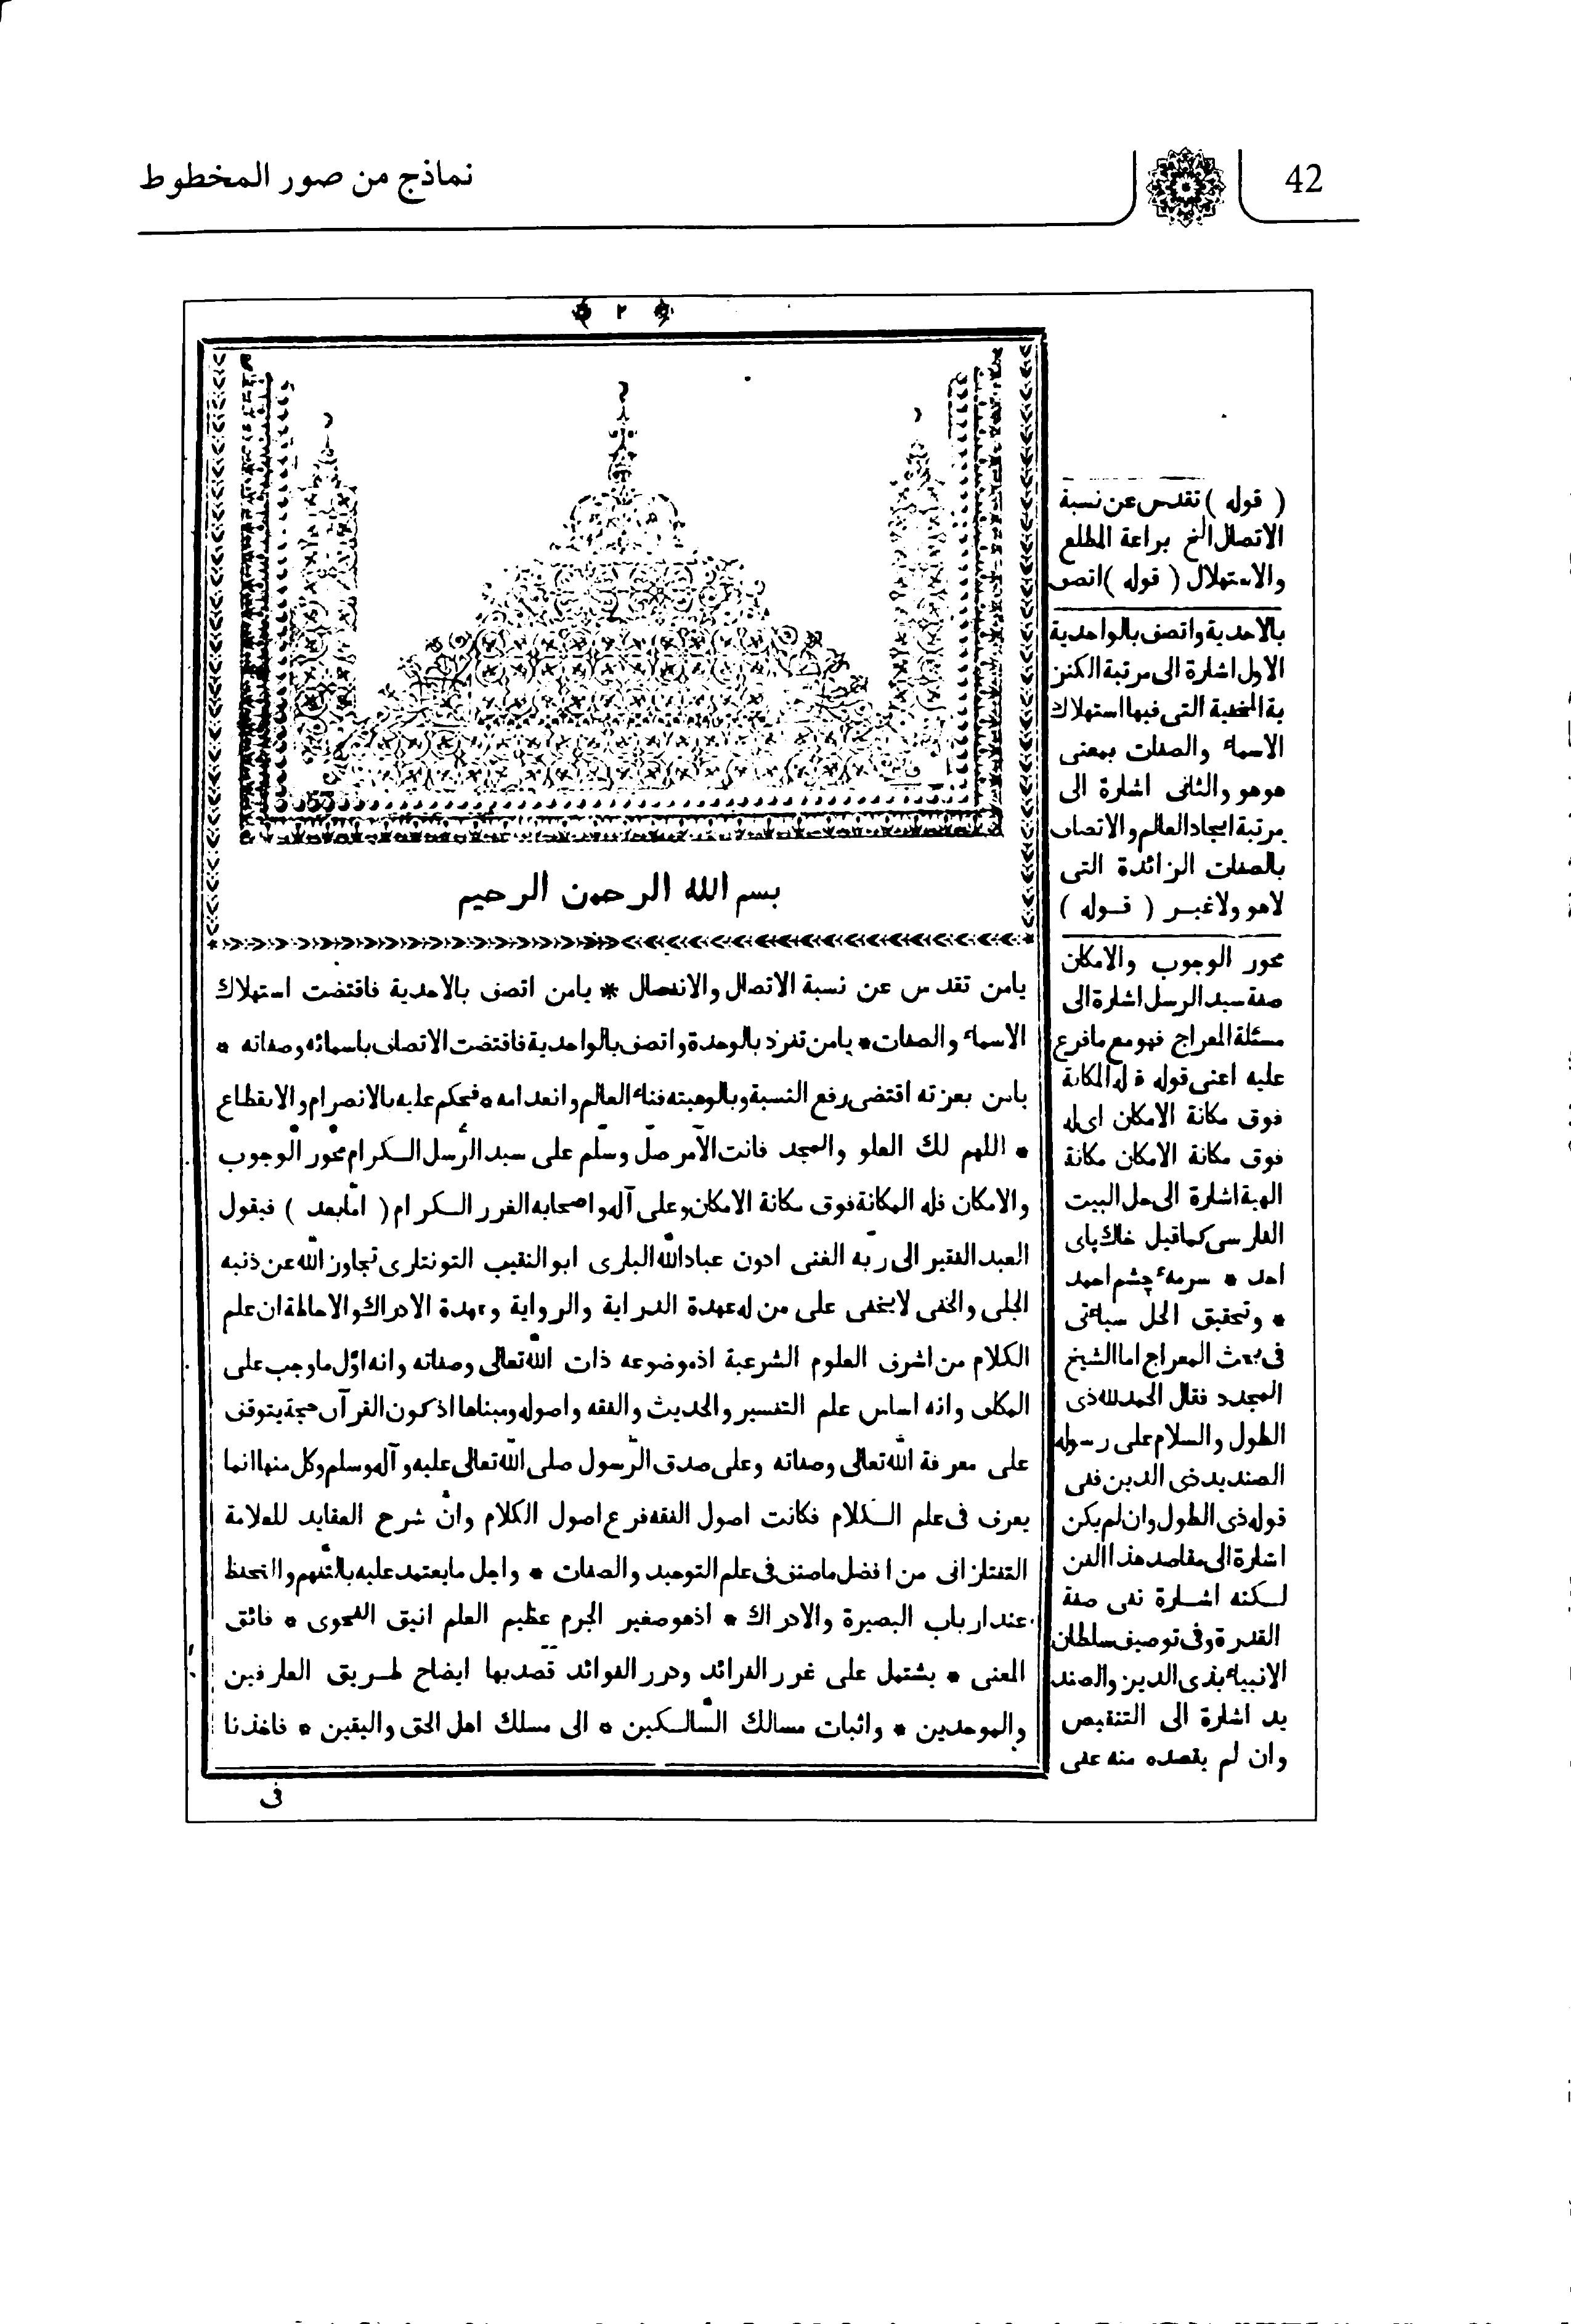 42
نماذج من صور المخطوط
﴿ ٢ ﴾
بسم الله الرحمن الرحيم
يامن تقدس عن نسبة الاتصال والانفصال * يامن اتصف بالاحدية فاقتضت استهلاك
الاسماء والصفات * يامن تفرد بالوحدة واتصف بالواحدية فاقتضت الاتصاف باسمائه وصفاته *
يامن بعزته اقتضى رفع النسبة وبالوهيته فناء العالم وانعدامه * فحكم عليه بالانصرام والانقطاع
* اللهم لك العلو والمجد فانت الآمر صلّ وسلّم على سيد الرّسل الكرام محور الوجوب
والامكان فله المكانة فوق مكانة الامكان وعلى آله واصحابه الغرر الكرام ( امّا بعد ) فيقول
العبد الفقير الى ربّه الغنى ادون عباد اللّه البارى ابو النقيب التونتارى تجاوز اللّه عن ذنبه
الجلى والخفى لا يخفى على من له عهدة الدراية والرواية وعهدة الادراك والاحاطة ان علم
الكلام من اشرف العلوم الشرعية اذ موضوعه ذات اللّه تعالى وصفاته وانه اوّل ما وجب على
المكلف وانه اساس علم التفسير والحديث والفقه واصوله ومبناها اذ كون القرآن حجة يتوقف
على معرفة اللّه تعالى وصفاته وعلى صدق الرّسول صلى اللّه تعالى عليه وآله وسلم وكل منها انما
يعرف فى علم الكلام فكانت اصول الفقه فرع اصول الكلام وانّ شرح العقايد للعلامة
التفتازانى من افضل ما صنف فى علم التوحيد والصفات * واجل ما يعتمد عليه بالتّفهم والتحفظ
عند ارباب البصيرة والادراك * اذ هو صغير الجرم عظيم العلم انيق الفحوى * فائق
المعنى * يشتمل على غرر الفرائد ودرر الفوائد قصد بها ايضاح طريق العارفين
والموحدين * واثبات مسالك السّالكين * الى مسلك اهل الحق واليقين * فاخذنا
فى
( قوله ) تقدس عن نسبة
الاتصال الخ براعة المطلع
والاستهلال ( قوله ) اتصف
بالاحدية واتصف بالواحدية
الاول اشارة الى مرتبة الكنز
ية المخفية التى فيها استهلاك
الاسماء والصفات بمعنى
هو هو والثانى اشارة الى
مرتبة ايجاد العالم والاتصاف
بالصفات الزائدة التى
لاهو ولاغير ( قوله )
محور الوجوب والامكان
صفة سيد الرسل اشارة الى
مسئلة المعراج فهو مع ما فرع
عليه اعنى قوله فله المكانة
فوق مكانة الامكان اى له
فوق مكانة الامكان مكانة
الهية اشارة الى حل البيت
الفارسى كما قيل خاك پاى
احد * سرمهٔ چشم احمد
* وتحقيق الحل سيأتى
فى بحث المعراج اما الشيخ
المجدد فقال الحمد لله ذى
الطول والسلام على رسوله
الصنديد ذى الدين ففى
قوله ذى الطول وان لم يكن
اشارة الى مقاصد هذا الفن
لكنه اشارة نفى صفة
القدرة وفى توصيف سلطان
الانبياء بذى الدين والصند
يد اشارة الى التنقيص
وان لم يقصده منه عفى